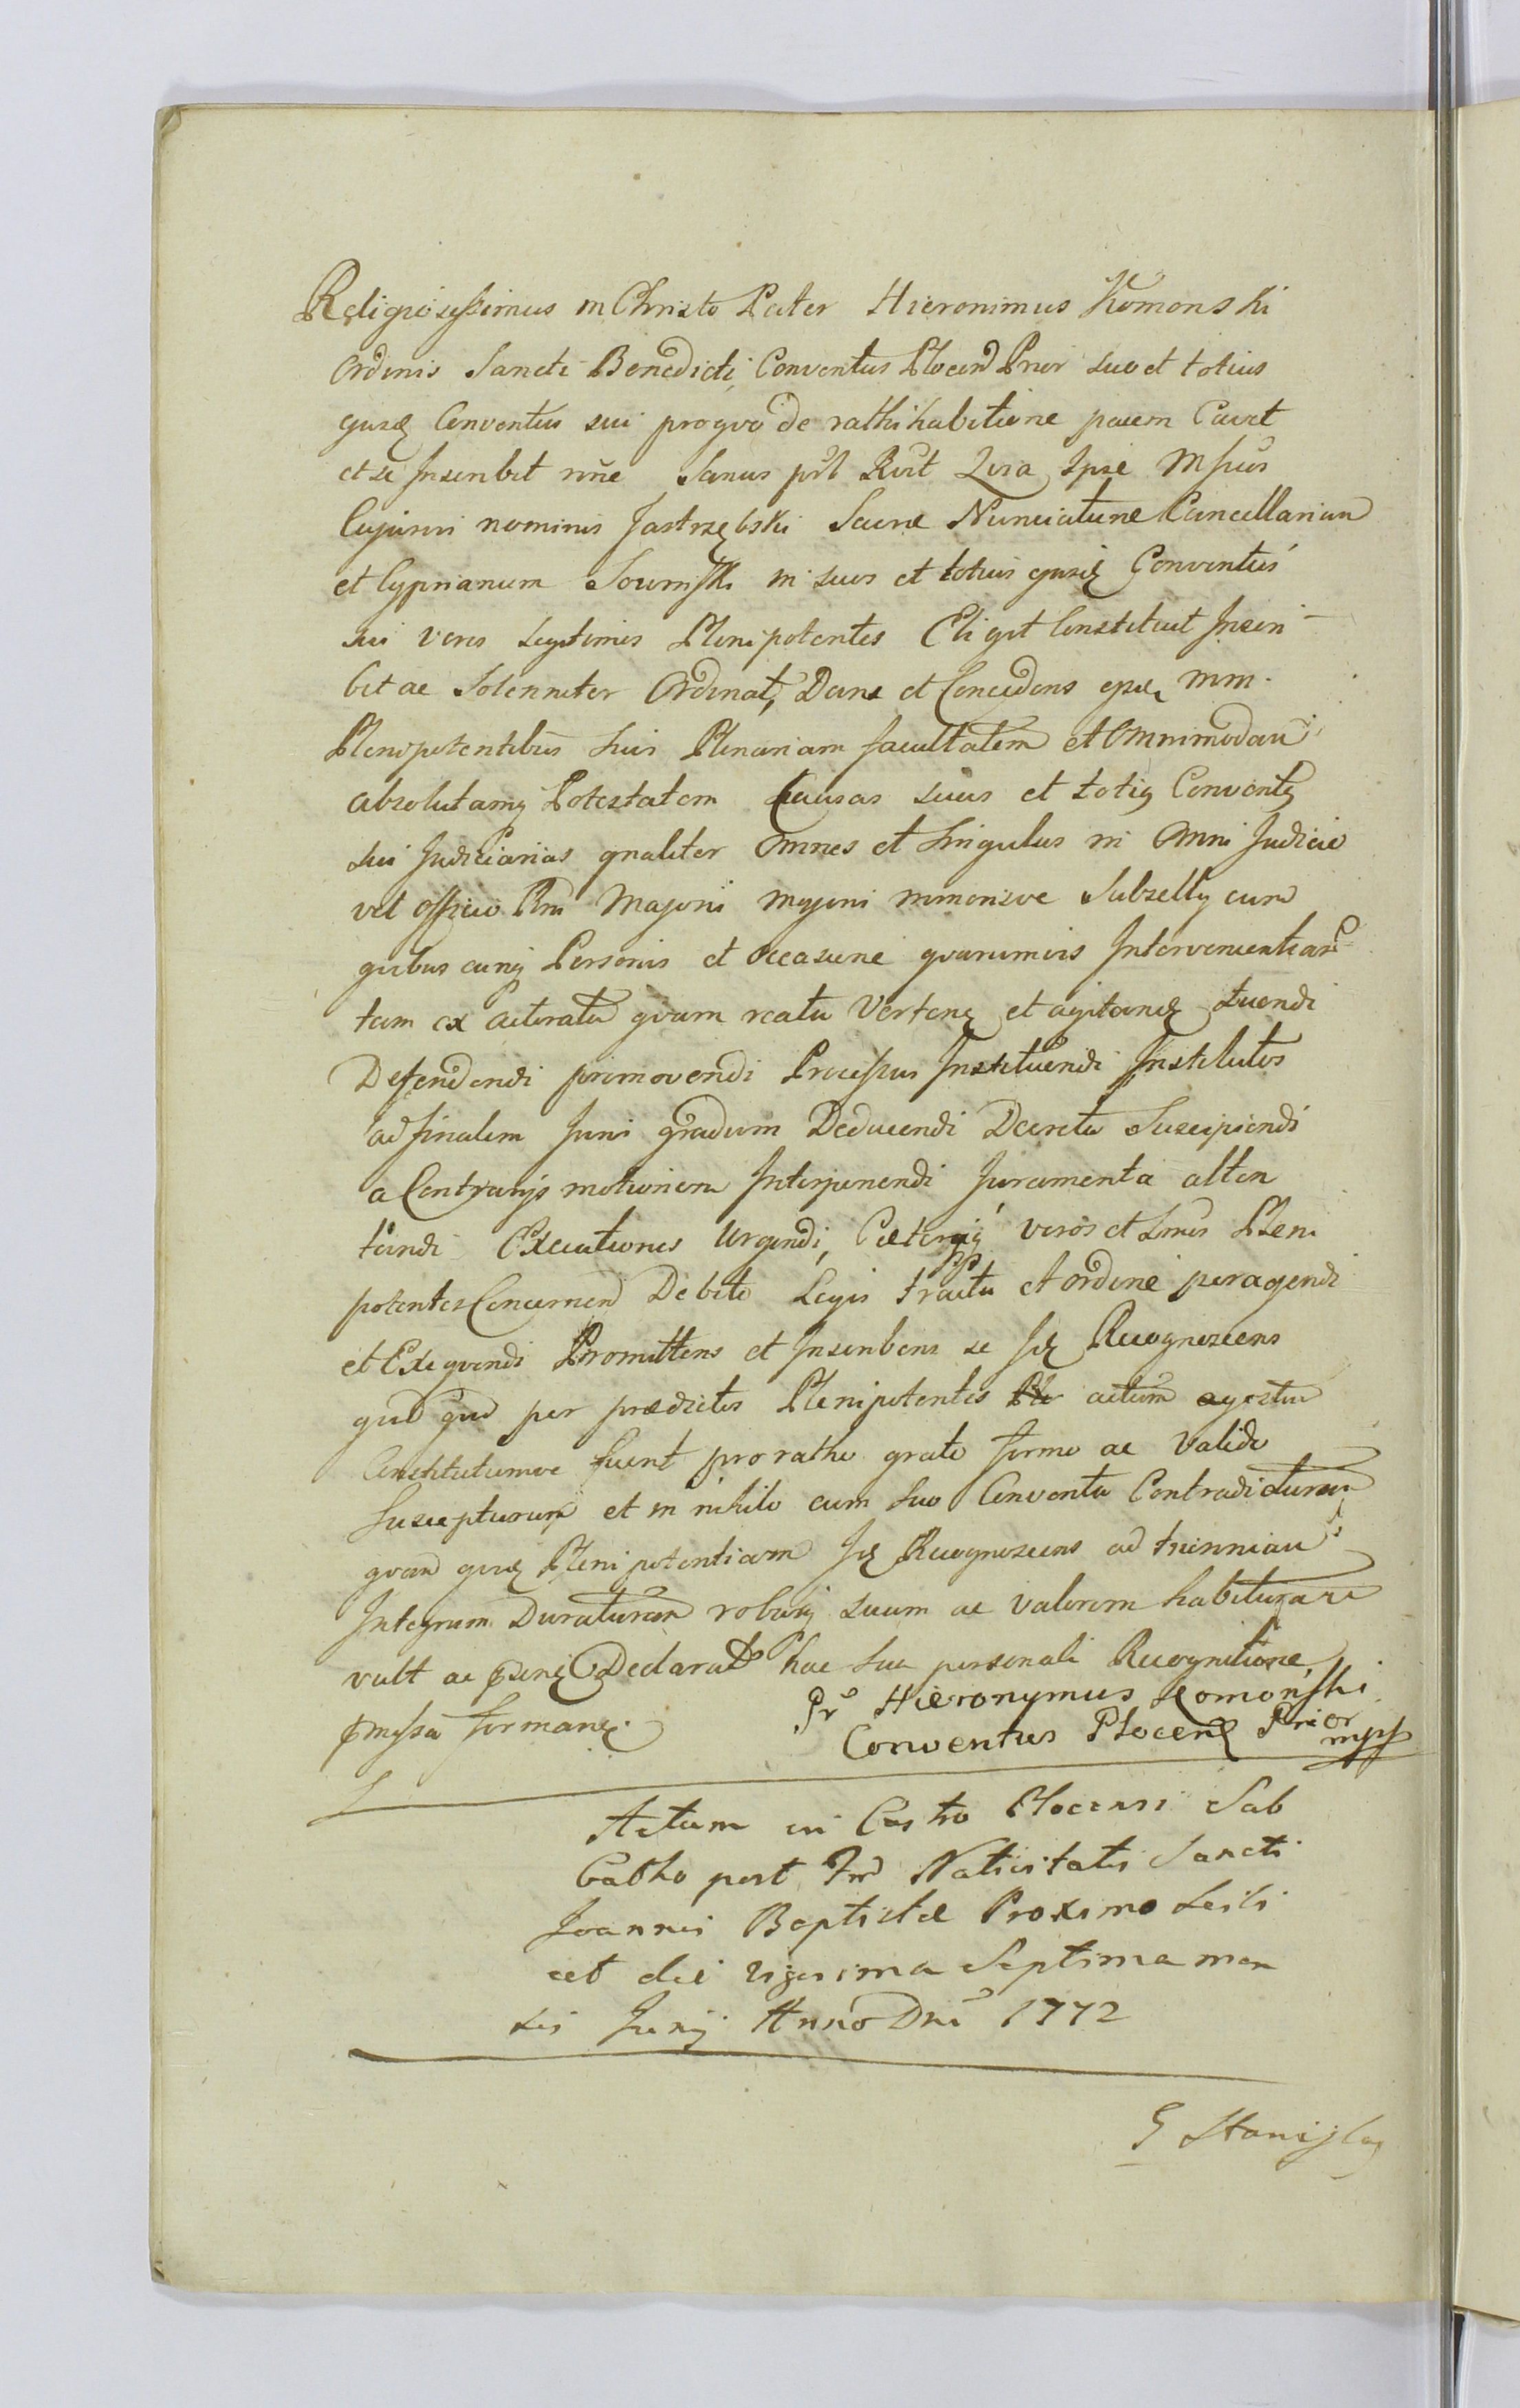 Religiosissimus in Christo Pater Hieronimus Komonski
Ordinis Sancti Benedicti Conventus Plocen Prior suo et totius
ejusq Conventus sui pro quo de rathihabitione pacem Cavet
et se Inscribit nõe Sanus
Cujusvi nominis Jastrzębski Sacræ Nunciaturæ Cancellarian
et Cyprianum in suos et totius ejusq Conventus
sui veros Legitimos Plenipotentes Eligit Constituit Inscri-
bit ac Solenniter Ordinat, Dans et Concedens mm.
Plenipotentibus suis Plenariam facultatem et Omnimodam
absolutamq Potestatem Causas suas et totiq Conventq
sui Judiciarias qnaliter Omnes et Singulas in Omni Judicio
vel Officio Rni Majoris minorisve Subsellij cum
quibuscunq Personis et occasione quarumvis
tam ex actoratu quam reatu Verten et agitan tuendi
Defendendi promovendi Processus Instituendi Institutos
ad finalem Juris gradum Deducendi Decreta Suscipiendi
a Contrarijs motionem Interponendi Juramenta atten
tandi Executiones Urgendi, Cæteraq veros et Pleni
potentes Concernen Debito Legis tractu et ordine peragendi
et Exequendi Promittens et Inscribens se Recognoscens
quid per prædictos Plenipotentes actum agestum
Constitutumve fuerit pro ratho grato firmo ac Valido
Suscepturum et in nihilo cum suo Conventu Contradicturum
quam Plenipotentiam Recognoscens ad triennium
Integrum Duraturam roburq suum ac valorem habituram
vult ac Declarat hac sua personali Recognitione,
pmissa
Pr Hieronymus Komonski
Conventus Plocen Prior
mpp
Actum in Castro Plocensi Sab
batho post Fm Nativitatis Sancti
Joannis Baptistæ Proximo scili
cet die vigesima Septima men
sis Junij Anno Dni 1772
Stanislaq